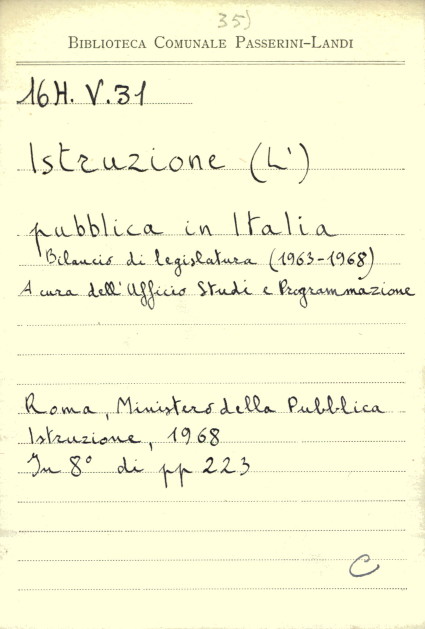 35)
BIBLIOTECA COMUNALE PASSERINI-LANDI
16H. V. 31
Istruzione (L')
pubblica in Italia
Bilancio di legislatura (1963-1968)
A cura dell'Ufficio Studi e Programmazione
Roma, Ministero della Pubblica
Istruzione, 1968
In 8° di pp 223
C